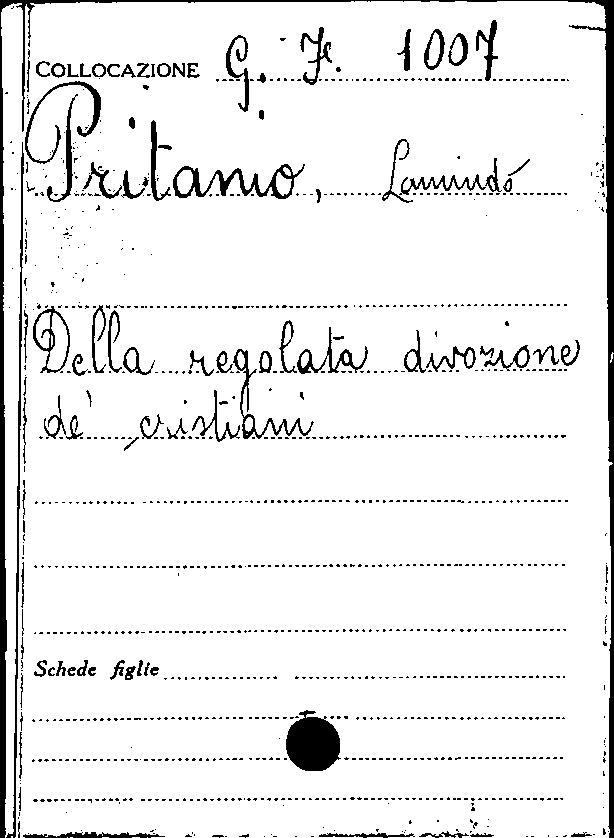 COLLOCAZIONE G. F. 1007
Pritanio, Lamindo
Della regolata divozione
de' cristiani
Schede figlie